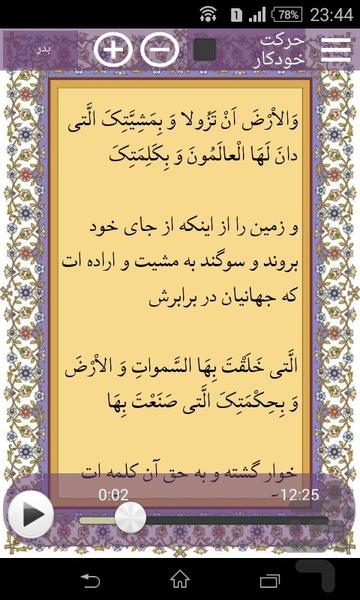 78% 23:44
حرکت
خودکار
بدر
وَالاْرْضَ اَنْ تَزُولا وَ بِمَشِيَّتِکَ الَّتى
دانَ لَهَا الْعالَمُونَ وَ بِکَلِمَتِکَ
و زمین را از اینکه از جای خود
بروند و سوگند به مشیت و اراده ات
که جهانیان در برابرش
الَّتى خَلَقْتَ بِهَا السَّمواتِ وَ الاْرْضَ
وَ بِحِکْمَتِکَ الَّتى صَنَعْتَ بِهَا
خوار گشته و به حق آن کلمه ات
0:02 12:25